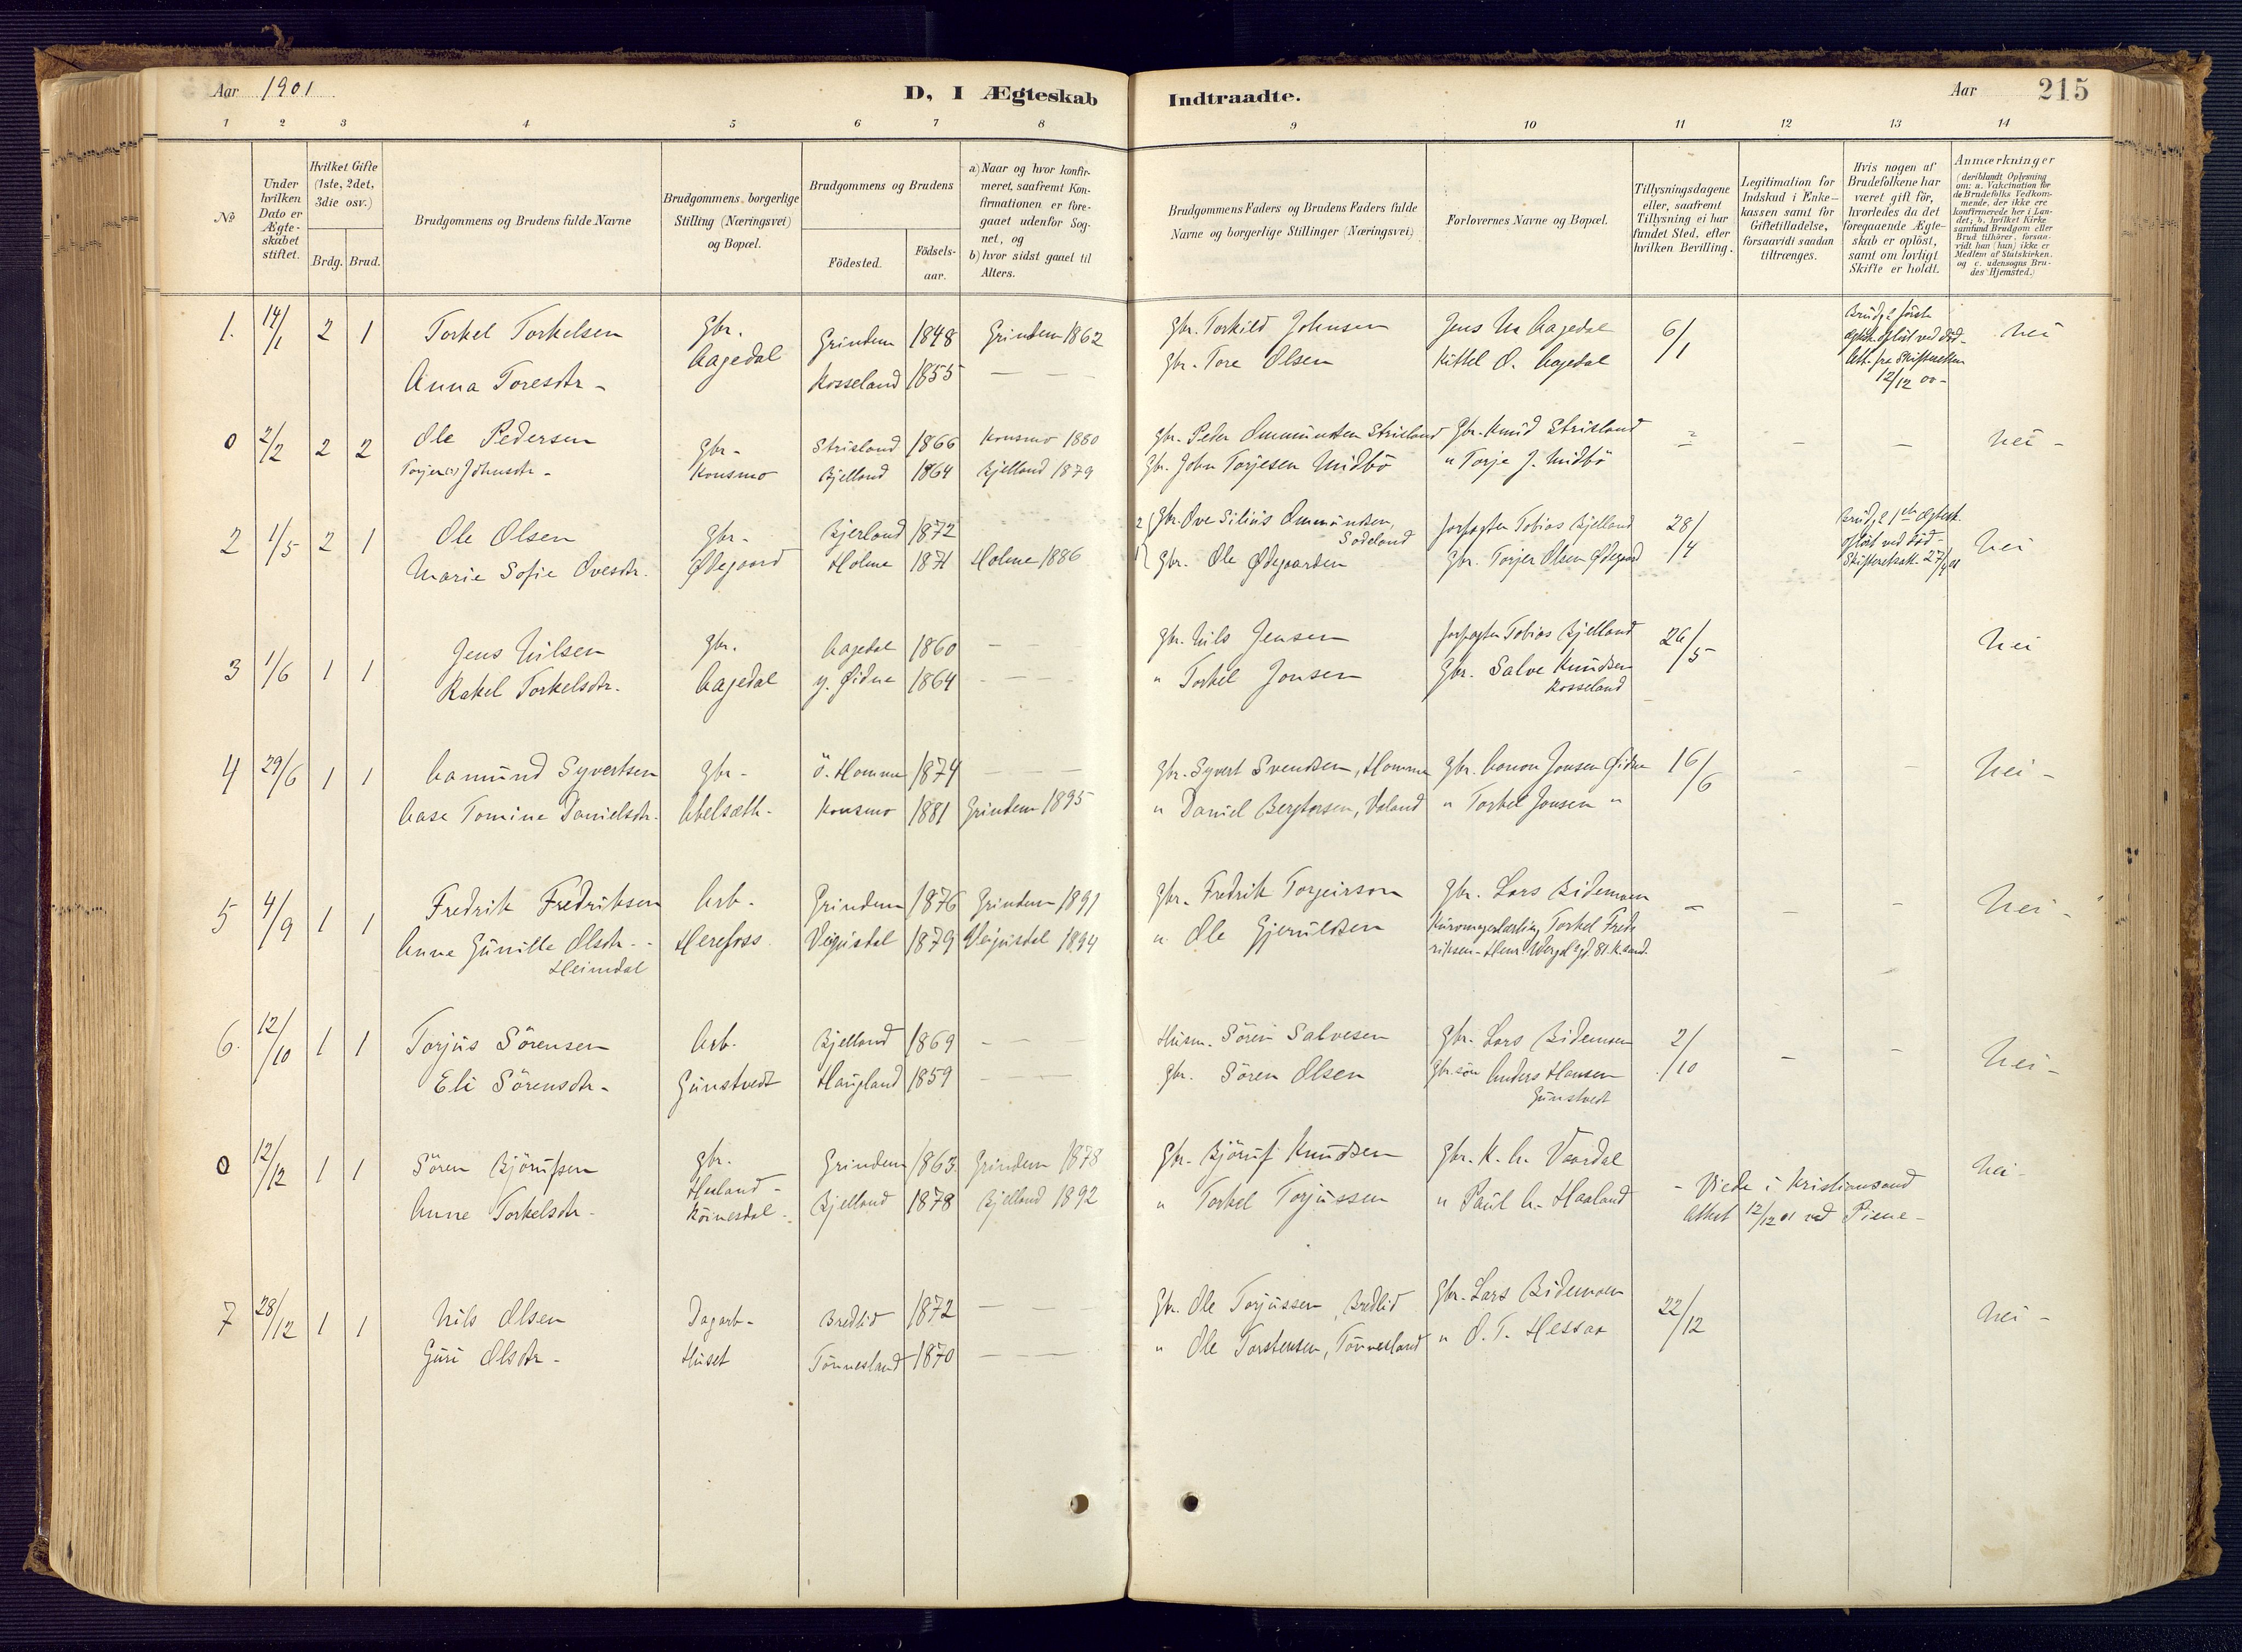 Aar 1901
D, I Ægteskab Indtraadte.
Aar 215
1 2 3 4 5 6 7 8 9 10 11 12 13 14
No
Under hvilken Dato er Ægteskabet stiftet.
Hvilket Gifte (1ste, 2det, 3die osv.)
Brdg. Brud.
Brudgommens og Brudens fulde Navne
Brudgommens borgerlige Stilling (Næringsvei) og Bopæl.
Brudgommens og Brudens
Födested.
Födsels-aar.
a) Naar og hvor konfirmeret, saafremt Konfirmationen er foregaaet udenfor Sognet, og
b) hvor sidst gaaet til Alters.
Brudgommens Faders og Brudens Faders fulde Navne og borgerlige Stillinger (Næringsvei)
Forlovernes Navne og Bopæl.
Tillysningsdagene eller, saafremt Tillysning ei har fundet Sted, efter hvilken Bevilling.
Legitimation for Indskud i Enkekassen samt for Giftetilladelse, forsaavidt saadan tiltrænges.
Hvis nogen af Brudefolkene har været gift før, hvorledes da det foregaaende Ægteskab er oplöst, samt om lovligt Skifte er holdt.
Anmærkninger (deriblandt Oplysning om: a. Vakcination for de Brudefolks Vedkommende, der ikke ere konfirmerede her i Landet; b. hvilket Kirkesamfund Brudgom eller Brud tilhörer, forsaavidt han (hun) ikke er Medlem af Statskirken. og c. udensogns Brudes Hjemsted.)
1. 14/1 2 1 Torkel Torkelsen Gbr. Aagedal Grindem 1848 Grindem 1862 Gbr. Torkild Johnsen Jens N. Aagedal 6/1 nei
Anna Toresdtr - Kosseland 1855 — — — Gbr. Tore Olsen Kittel O. Aagedal
12/12 00 -
0 2/2 2 2 Ole Pedersen Gbr - Konsmo Strisland 1866 Konsmo 1880 Gbr. Peder Ommundsen Strisland Gbr. Knud Strisland - nei -
Johnsdtr - Bjelland 1864 Bjelland 1879 Gbr. John Torjesen Midbö " Torje J. Midbö
2 1/5 2 1 Ole Olsen Gbr - Ødegaard Bjerland 1872 2 Gbr. Ove Silius Ommundsen, Sodeland forpagter Tobias Bjelland 28/4 nei
Marie Sofie Ovesdtr. Holme 1871 Holme 1886 1 Gbr. Ole Ødegaarden Gbr. Torjer Olsen Ødegaard
3 1/6 1 1 Jens Nilsen Gbr. Aagedal Aagedal 1860 — Gbr. Nils Jensen forpagter Tobias Bjelland 26/5 nei
Rakel Torkelsdtr. y. Øidne 1864 — " Torkel Jonsen Gbr. Salve Knudsen Kosseland
4 29/6 1 1 Aamund Syvertsen Gbr - Abelsæth. Ö. Homme 1874 — Gbr. Syvert Svendsen, Homme Gbr. Aanon Jonsen Øidne 16/6 nei -
Aase Tomine Danielsdtr. Konsmo 1881 Grindem 1895 " Daniel Bergtorsen, Valand " Torkel Jonsen "
5 4/9 1 1 Fredrik Fredriksen Arb - Herefoss Grindem 1876 Grindem 1891 Gbr. Fredrik Torgeirson Gbr. Lars Bidemoen - nei -
Anne Gunille Olsdtr. - Heimdal Veigusdal 1879 Veigusdal 1894 " Ole Gjeruldsen Torkel Fredriksen - Henr. Wergel. gd. 81. K.sand.
6. 12/10 1 1 Torjus Sörensen Arb. Gunstvedt Bjelland 1869 — Husm. Sören Salvesen Gbr. Lars Bidemoen 2/10 nei -
Eli Sörensdtr - Haugland 1859 — Gbr. Sören Olsen Gbr.sön Anders Hansen Gunstvedt
0 12/12 1 1 Sören Björufsen Gbr. Grindem 1863. Grindem 1878 Gbr. Björuf Knudsen Gbr. K. A. Vaardal nei -
Anne Torkelsdtr - Bjelland 1878 Bjelland 1892 " Torkel Torjussen " Paul A. Haaland - Viede i Kristiansand Attest 12/12 01 ved Piene -
7 28/12 1 1 Nils Olsen Dagarb - Huset Bredlid 1872 — Gbr. Ole Torjussen, Bredlid Gbr. Lars Bidemoen 22/12 nei -
Guri Olsdtr - Tönnesland 1870 — " Ole Torstensen, Tönnesland " O. T. Hessaa